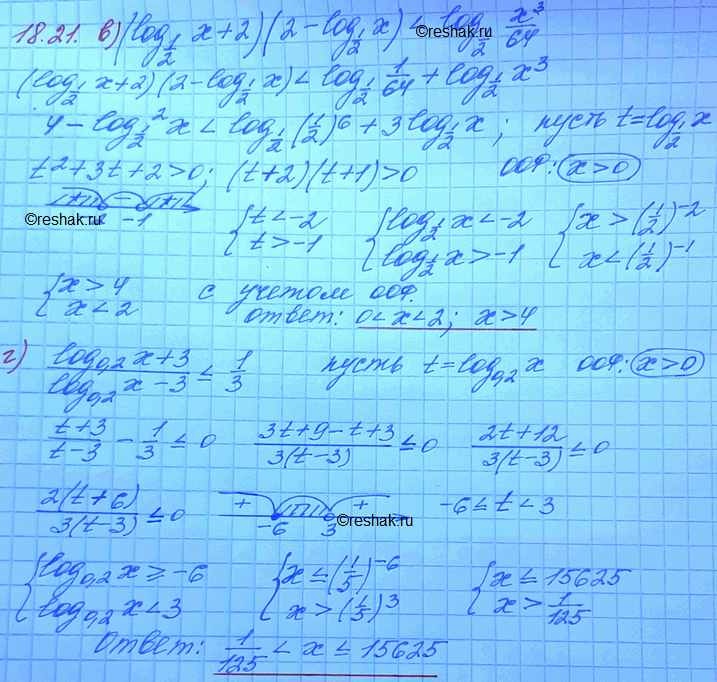 18.21. в) (log_{1/2} x+2)(2-log_{1/2} x) < log_{1/2} x³/64
(log_{1/2} x+2)(2-log_{1/2} x) < log_{1/2} 1/64 + log_{1/2} x³
4 - log_{1/2}² x < log_{1/2} (1/2)⁶ + 3log_{1/2} x; пусть t=log_{1/2} x
t²+3t+2>0; (t+2)(t+1)>0 ООФ: x>0
+ - + -1
©reshak.ru
{ t<-2 { log_{1/2} x<-2 { x>(1/2)⁻²
t>-1 log_{1/2} x>-1 x<(1/2)⁻¹
{ x>4 с учетом ООФ.
x<2 ответ: 0<x<2; x>4
г) (log_{0,2} x+3)/(log_{0,2} x-3) ≤ 1/3 пусть t=log_{0,2} x ООФ: x>0
(t+3)/(t-3) - 1/3 ≤ 0 (3t+9-t+3)/(3(t-3)) ≤ 0 (2t+12)/(3(t-3)) ≤ 0
2(t+6)/(3(t-3)) ≤ 0 + -6 3 + -6≤t<3
©reshak.ru
{ log_{0,2} x ≥ -6 { x≤(1/5)⁻⁶ { x≤15625
log_{0,2} x<3 x>(1/5)³ x>1/125
Ответ: 1/125 < x ≤ 15625